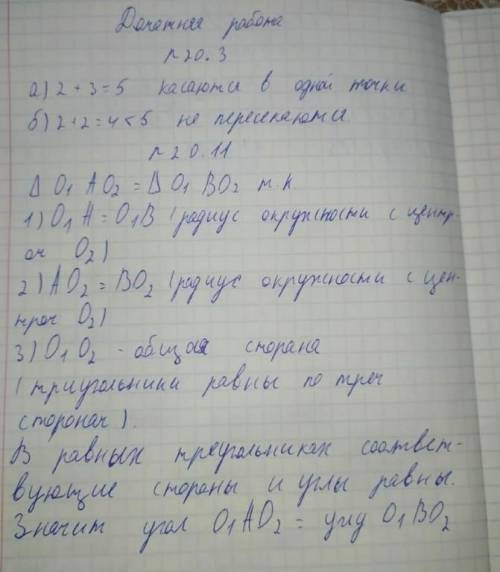 Домашняя работа
n 20.3
а) 2 + 3 = 5 касаются в одной точки
б) 2 + 2 = 4 < 5 не пересекаются
n 20.11
Δ O1 A O2 = Δ O1 B O2 т.к.
1) O1 A = O1 B (радиус окружности с центр-
ом O2)
2) A O2 = B O2 (радиус окружности с цен-
тром O2)
3) O1 O2 - общая сторана
(триугольники равны по трем
сторонам).
В равных треугольниках соответст-
вующие стороны и углы равны.
Значит угол O1 A O2 = углу O1 B O2